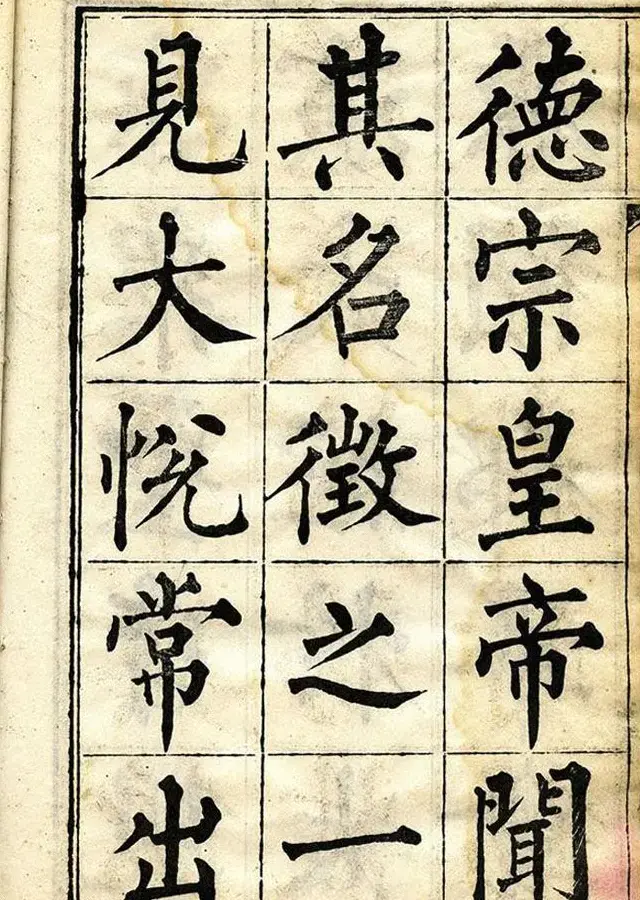 德宗皇帝聞
其名徵之一
見大悅常出